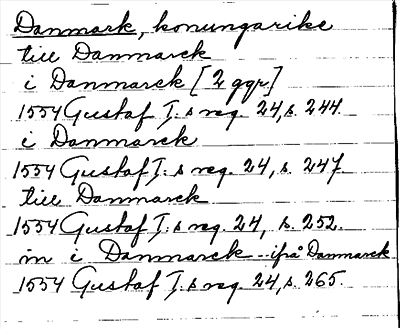 Danmark, konungarike
till Danmarck
i Danmarck [2 ggr]
1554 Gustaf I:s reg. 24, s. 244.
i Danmarck
1554 Gustaf I:s reg. 24, s. 247
till Danmarck
1554 Gustaf I:s reg. 24, s. 252.
in i Danmarck - ifrå Danmarck
1554 Gustaf I:s reg. 24, s. 265.